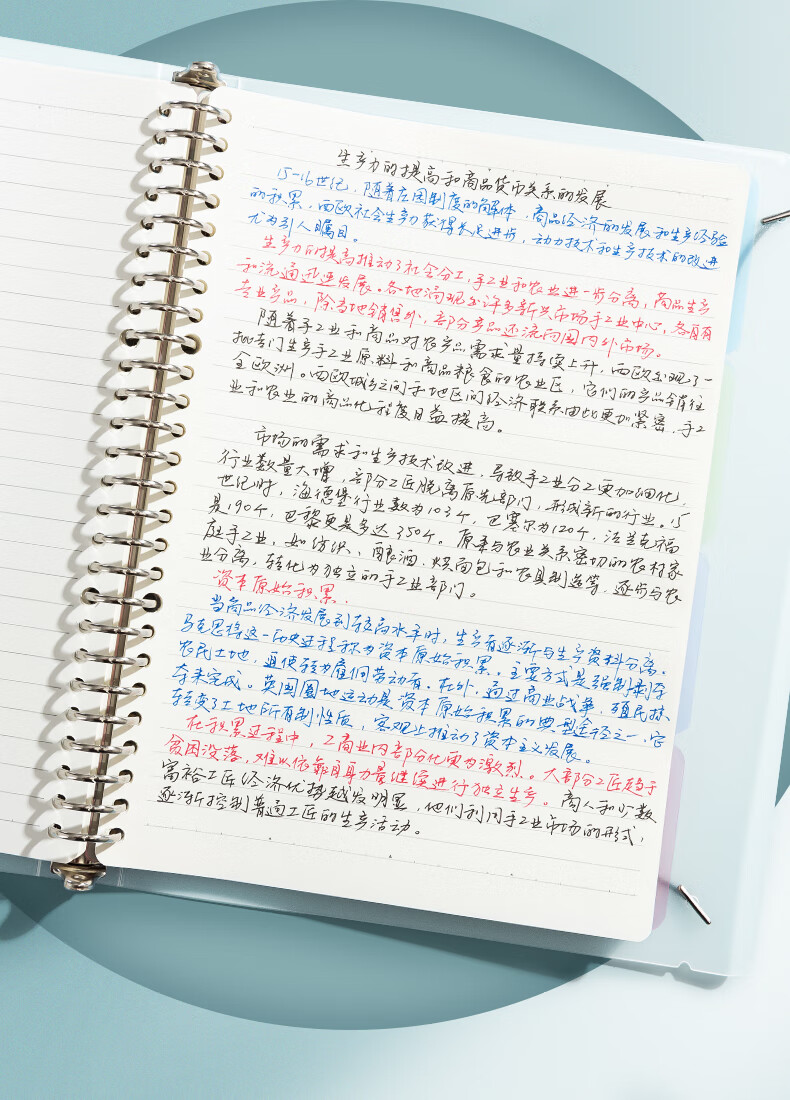 生产力的提高和商品货币关系的发展
15-16世纪，随着庄园制度的解体，商品经济的发展和生产经验
的积累，西欧社会生产力获得长足进步，动力技术和生产技术的改进
尤为引人瞩目。
生产力的提高推动了社会分工，手工业和农业进一步分离，商品生产
和流通迅速发展。各地涌现出许多新兴市场手工业中心，各自有
专业产品，除当地销售外，部分产品还流向国内外市场。
随着手工业和商品对农产品需求量持续上升，西欧出现了一
批专门生产手工业原料和商品粮食的农业区，它们的产品销往
全欧洲。西欧城乡之间和地区间经济联系由此更加紧密，手工
业和农业的商品化程度日益提高。
市场的需求和生产技术改进，导致手工业分工更加细化，
行业数量大增，部分工匠脱离原先部门，形成新的行业。15
世纪时，海德堡行业数为103个，巴塞尔为120个，法兰克福
是190个，巴黎更是多达350个。原来与农业关系密切的农村家
庭手工业，如纺织、酿酒、烘面包和农具制造等，逐步与农
业分离，转化为独立的手工业部门。
资本原始积累．
当商品经济发展到较高水平时，生产者逐渐与生产资料分离．
马克思将这一历史进程称为资本原始积累。主要方式是强制剥夺
农民土地，迫使转为雇佣劳动者。在外，通过商业战争，殖民掠
夺来完成。英国圈地运动是资本原始积累的典型途径之一，它
转变了土地所有制性质，客观上推动了资本主义发展。
在积累过程中，工商业内部分化更为激烈。大部分工匠趋于
贫困没落，难以依靠自身力量继续进行独立生产。商人和少数
富裕工匠经济优势越发明显，他们利用手工业市场的形式，
逐渐控制普通工匠的生产活动。